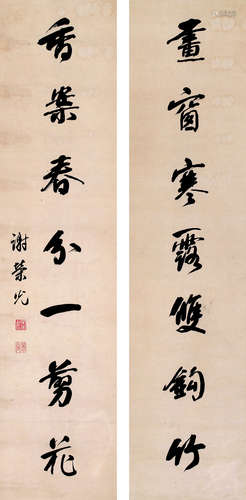 畫窗寒露雙鉤竹
香案春分一剪花
謝榮光